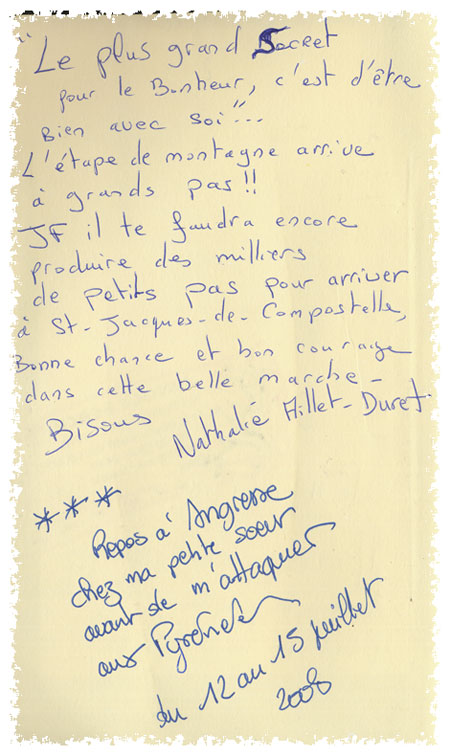 "Le plus grand Secret
pour le Bonheur, c'est d'être
Bien avec soi"...
L'étape de montagne arrive
à grands pas!!
JF il te faudra encore
produire des milliers
de petits pas pour arriver
à St-Jacques-de-Compostelle,
Bonne chance et bon courage
dans cette belle marche -
Bisous
Nathalie Aillet-Duret.
***
Repos à Angresse
chez ma petite soeur
avant de m'attaquer
aux Pyrénées
du 12 au 15 juillet
2008